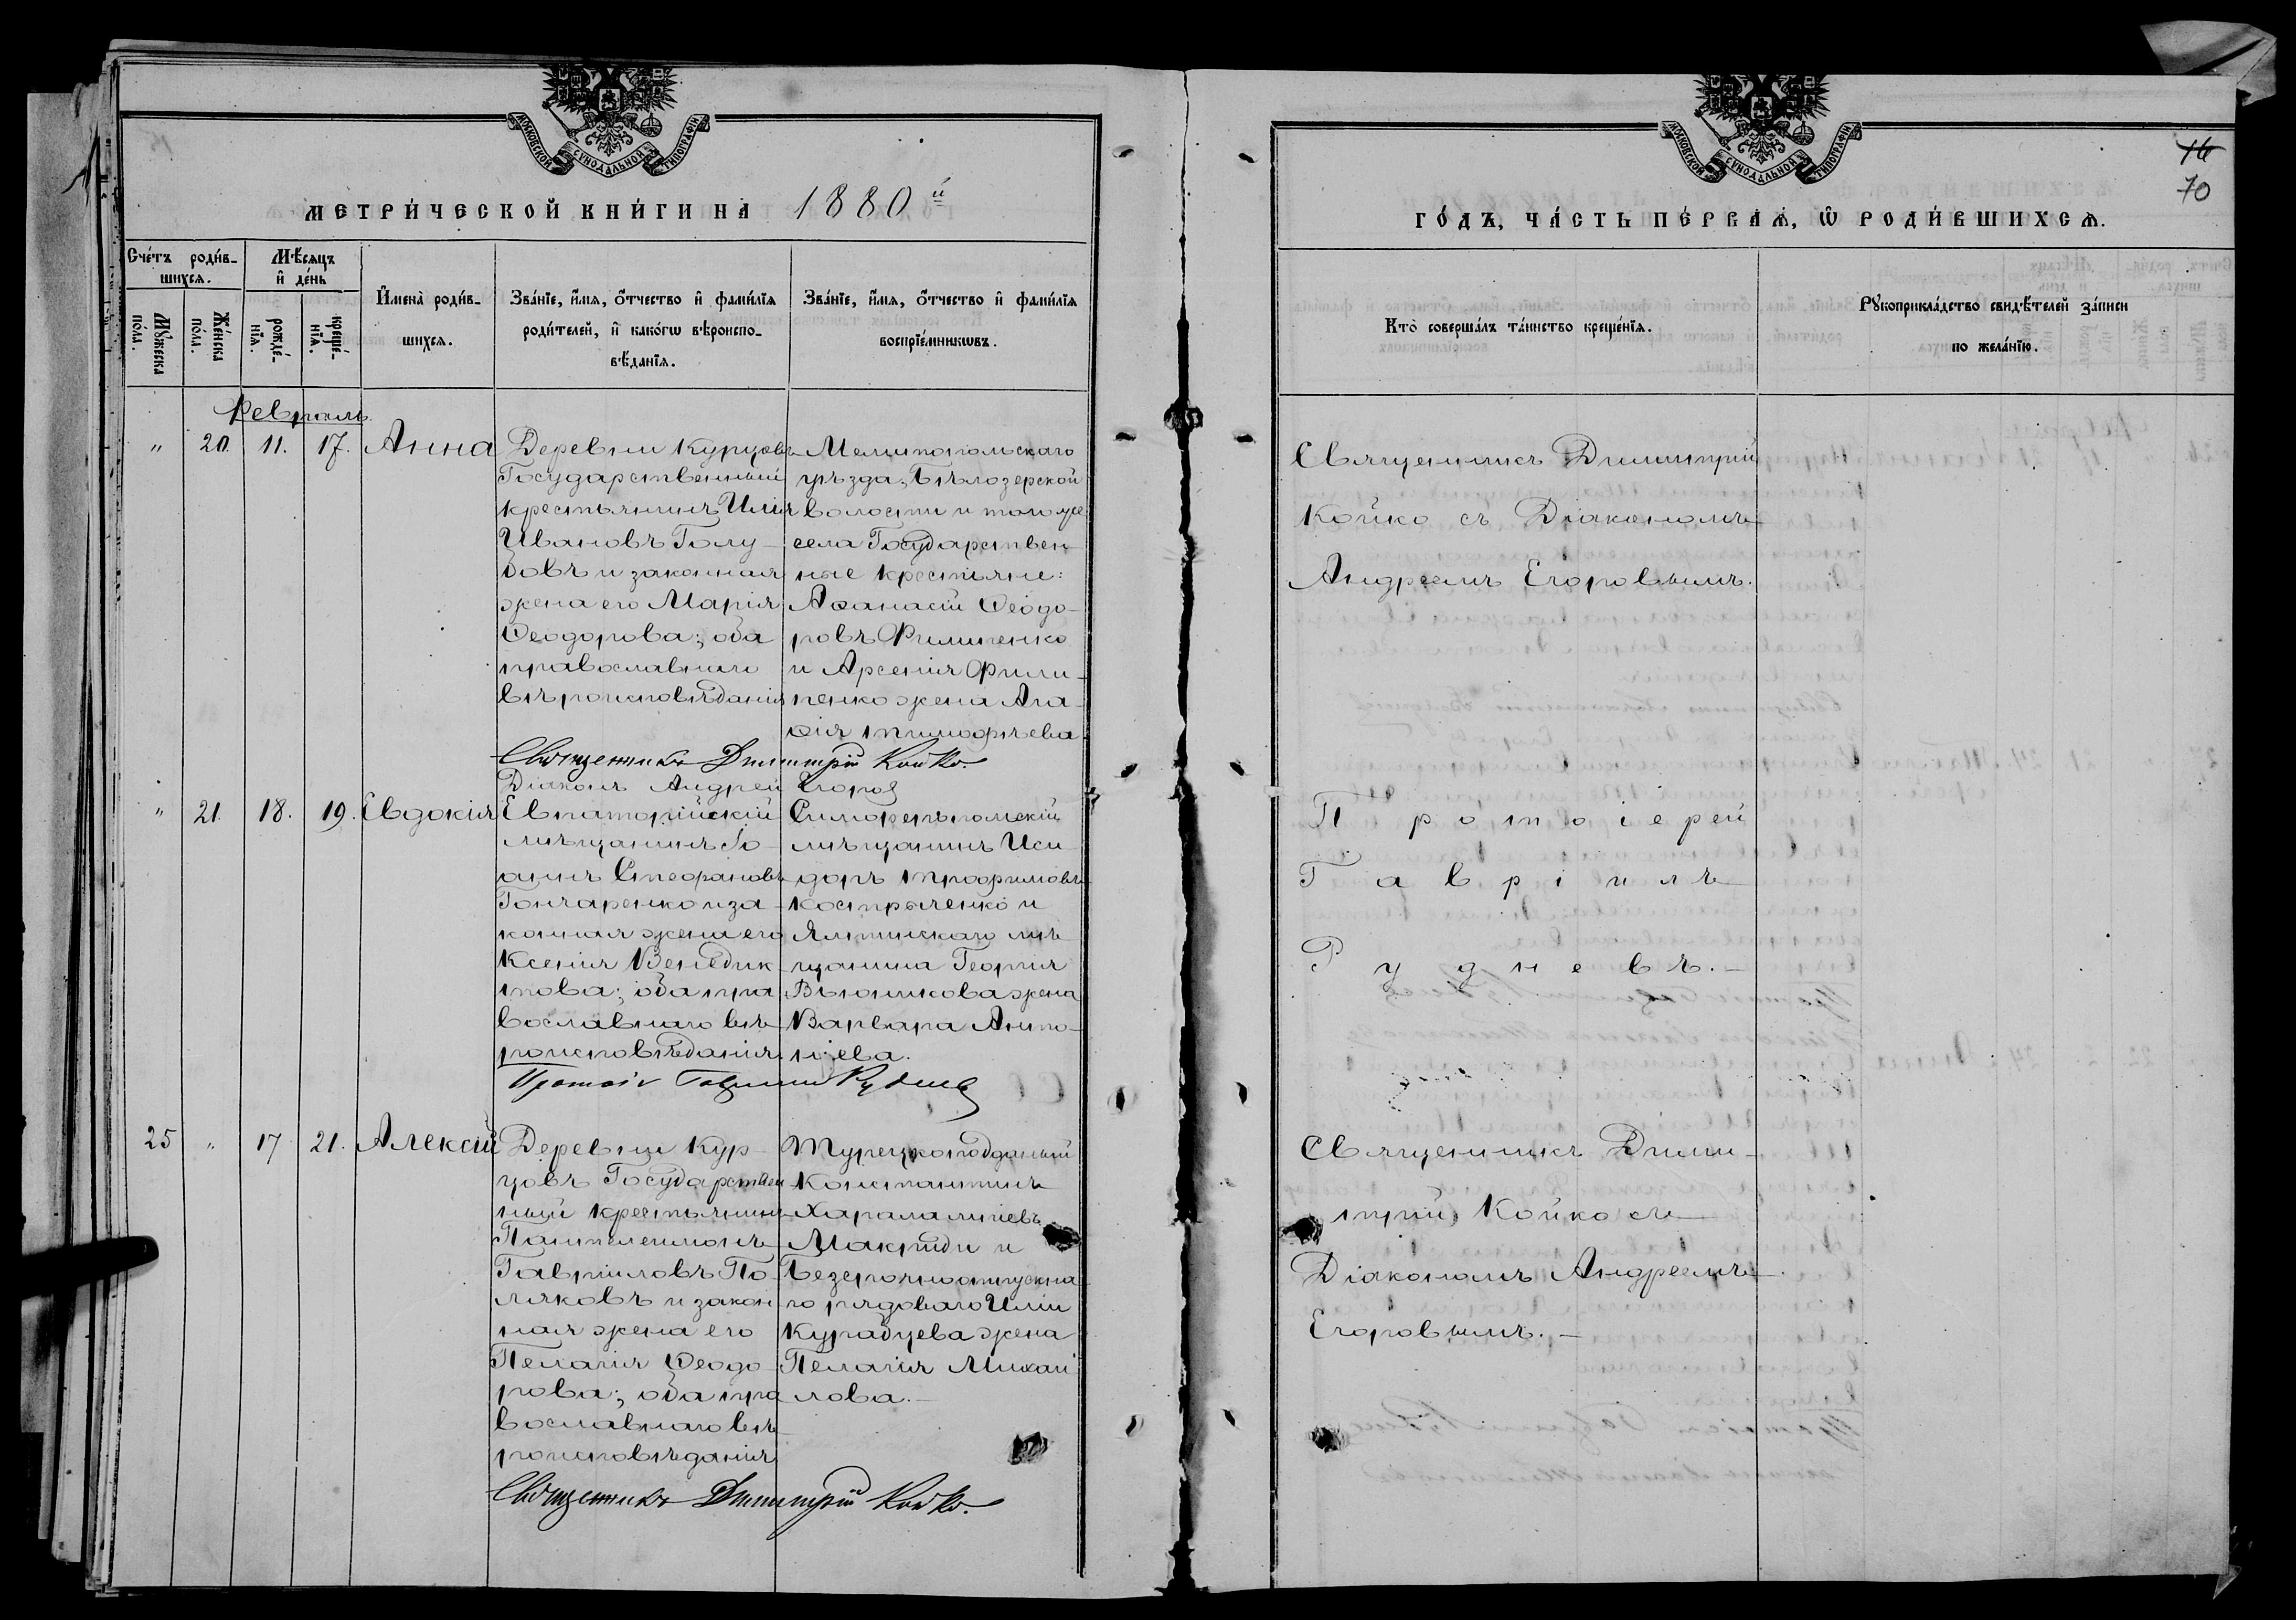 МОСКОВСКОЙ СѴНОДАЛЬНОЙ ТИПОГРАФІИ
МЕТРИ́ЧЕСКОЙ КНИ́ГИ НА 1880 й
Сче́тъ роди́в-
шихсѧ.
Мѣсѧцъ
и҆ де́нь
Мꙋжеска
по́ла.
Же́нска
по́ла.
рожде́-
нїѧ.
креще́-
нїѧ.
И҆мена̀ роди́в-
шихсѧ.
Зва́нїе, и҆́мѧ, ѻ҆́тчество и҆ фами́лїѧ
роди́телей, и҆ како́гѡ вѣроиспо-
вѣ́данїѧ.
Зва́нїе, и҆́мѧ, ѻ҆́тчество и҆ фами́лїѧ
воспрїе́мникѡвъ.
Февраль.
" 20. 11. 17. Анна
Деревни Курцовъ
Государственный
крестьянинъ Илія
Ивановъ Голу-
бовъ и законная
жена его Марія
Ѳеодорова; оба
православнаго
вѣроисповѣданія
Мелитопольскаго
уѣзда, Бѣлозерской
волости и того же
села Государствен-
ные крестьяне:
Аѳанасій Ѳеодо-
ровъ Филипенко
и Арсенія Фили-
пенко жена Ага-
ѳія Тимофѣева
Священникъ Димитрій Койко.
Діаконъ Андрей Егоров
" 21. 18. 19. Евдокія
Евпаторійскій
мѣщанинъ Іо-
аннъ Стефановъ
Гончаренко и за-
конная жена его
Ксенія Венедик-
това; оба пра-
вославнаго вѣ-
роисповѣданія.
Симферопольскій
мѣщанинъ Иси-
доръ Трофимовъ
Кострыченко и
Ялтинскаго мѣ-
щанина Георгія
Вьюникова жена
Варвара Анто-
ніева.
Протоі Гавриил Руднев
25 " 17 21. Алексій
Деревни Кур-
цовъ Государствен-
ный крестьянинъ
Пантелеимонъ
Гавріиловъ По-
ляковъ и закон-
ная жена его
Пелагія Ѳеодо-
рова; оба пра-
вославнаго вѣ-
роисповѣданія
Турецкоподданый
Константинъ
Харалампіевъ
Макриди и
Безсрочноотпускна-
го рядоваго Иліи
Курабцева жена
Пелагія Михаи-
лова.
Священникъ Димитрій Койко.
МОСКОВСКОЙ СѴНОДАЛЬНОЙ ТИПОГРАФІИ
16
70
ГО́ДЪ, ЧА́СТЬ ПЕ́РВАѦ, Ѡ҆ РОДИ́ВШИХСѦ.
Кто̀ соверша́лъ та́инство креще́нїѧ.
Рꙋкоприкла́дство свидѣ́телей за́писи
по жела́нїю.
Священникъ Димитрій
Койко съ Діакономъ
Андреемъ Егоровымъ.
Протоіерей
Гавріилъ
Рудневъ.
Священникъ Дими-
трій Койко съ
Діакономъ Андреемъ
Егоровымъ.